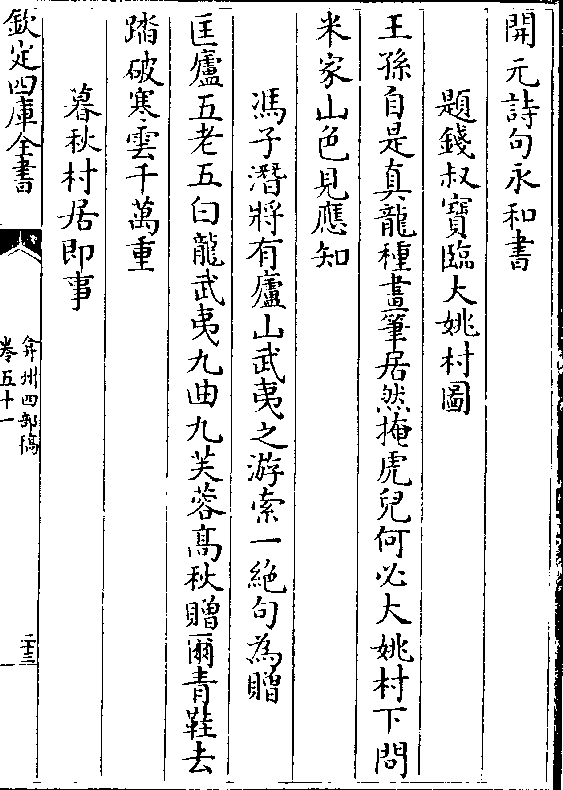 開元詩句永和書
題錢叔寶臨大姚村圖
王孫自是真龍種畫筆居然掩虎兒何必大姚村下問
米家山色見應知
馮子潛將有廬山武夷之游索一絶句為贈
匡廬五老五白龍武夷九曲九芙蓉髙秋贈爾青鞋去
踏破寒雲千萬重
暮秋村居即事
欽定四庫全書
弇州四部稿
卷五十一
二十三